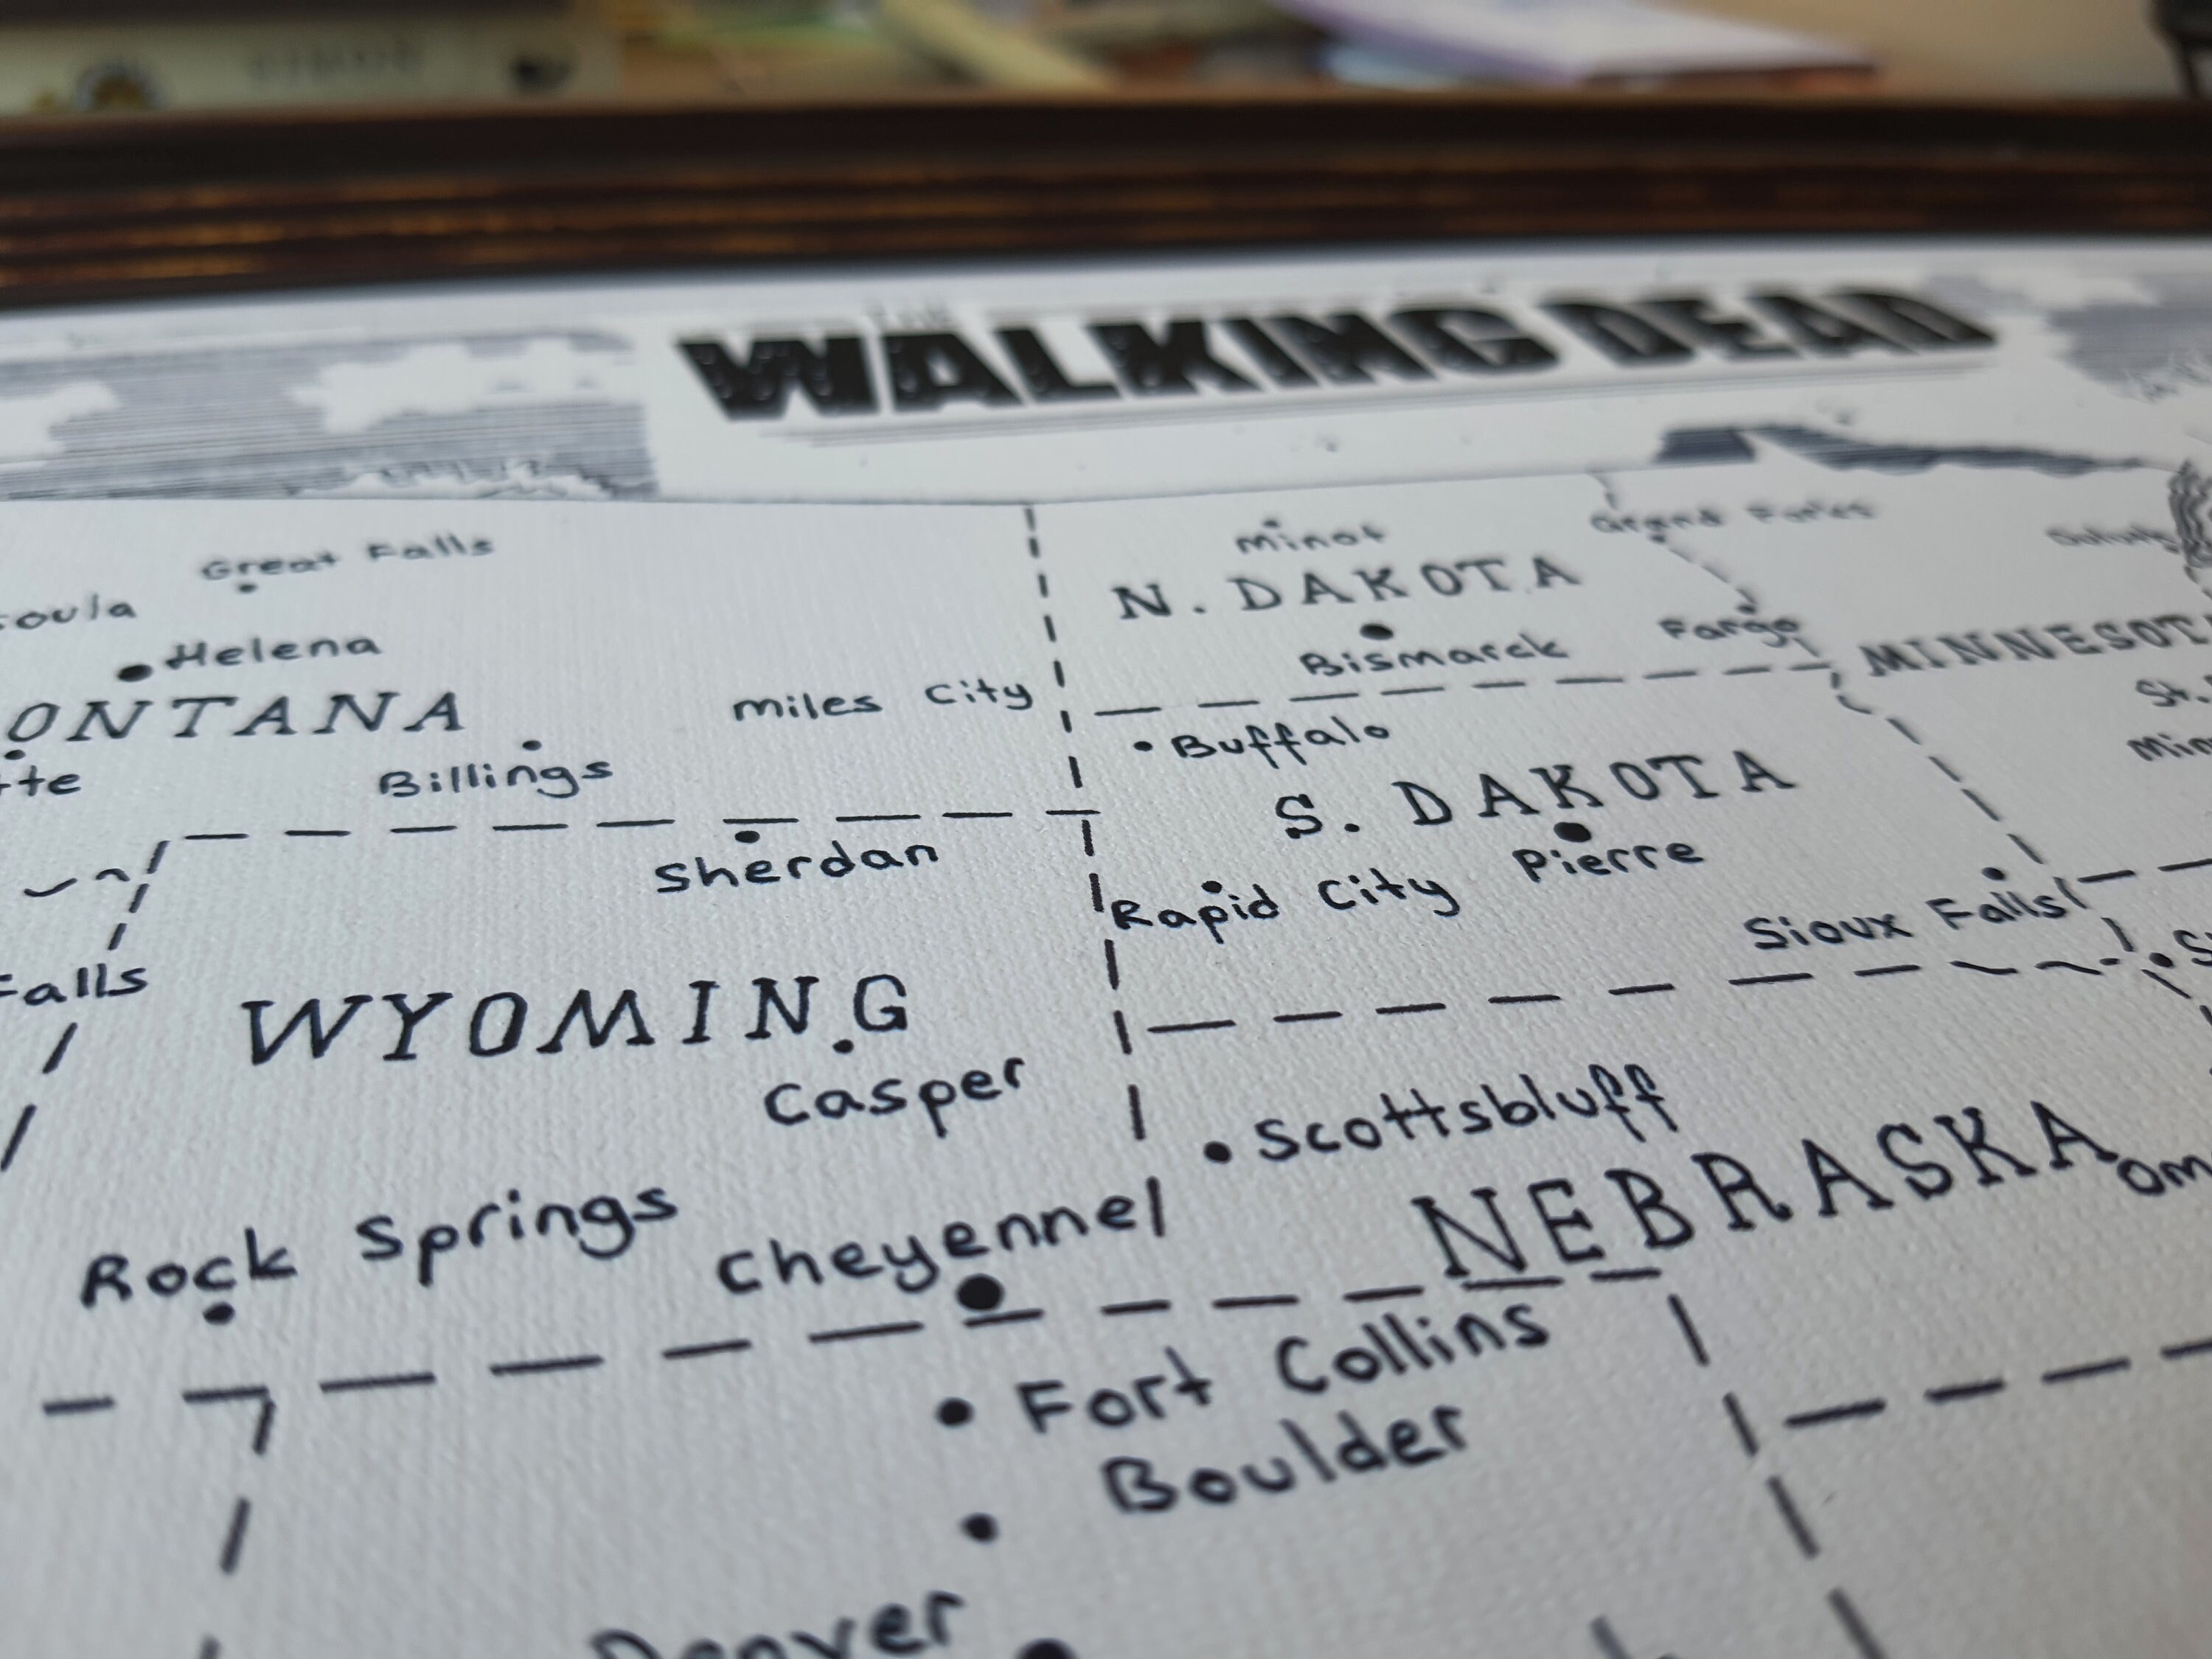 THE
WALKING DEAD
Great Falls
Minot
Grand Forks
N. DAKOTA
oula
Helena
Bismarck
Fargo
MINNESOT
ONTANA
Miles City
St.
Buffalo
Min
tte
Billings
S. DAKOTA
Pierre
Sherdan
Rapid City
Sioux Falls
S
Falls
WYOMING
Casper
Scottsbluff
NEBRASKA
Om
Rock Springs
Cheyenne
Fort Collins
Boulder
Denver